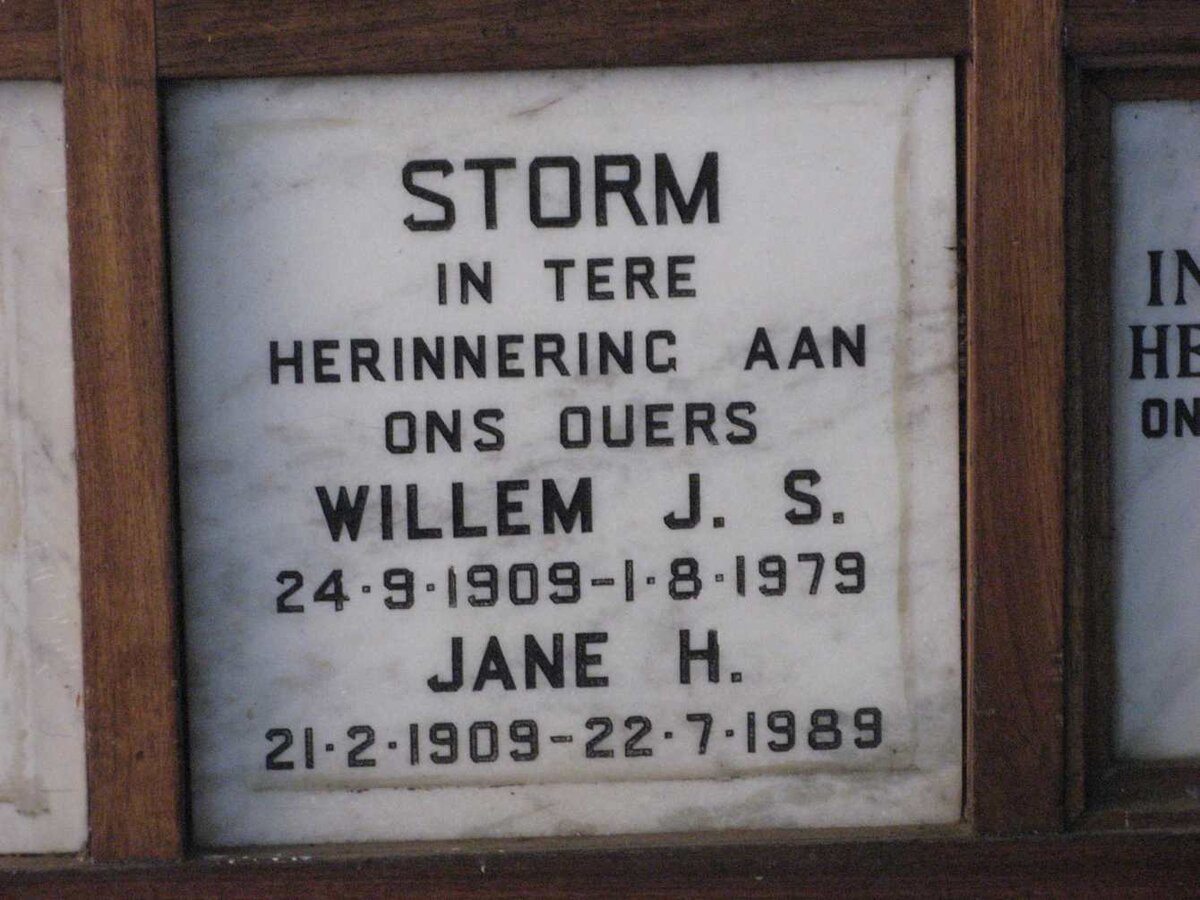 STORM
IN TERE
HERINNERING AAN
ONS OUERS
WILLEM J. S.
24·9·1909–1·8·1979
JANE H.
21·2·1909–22·7·1989